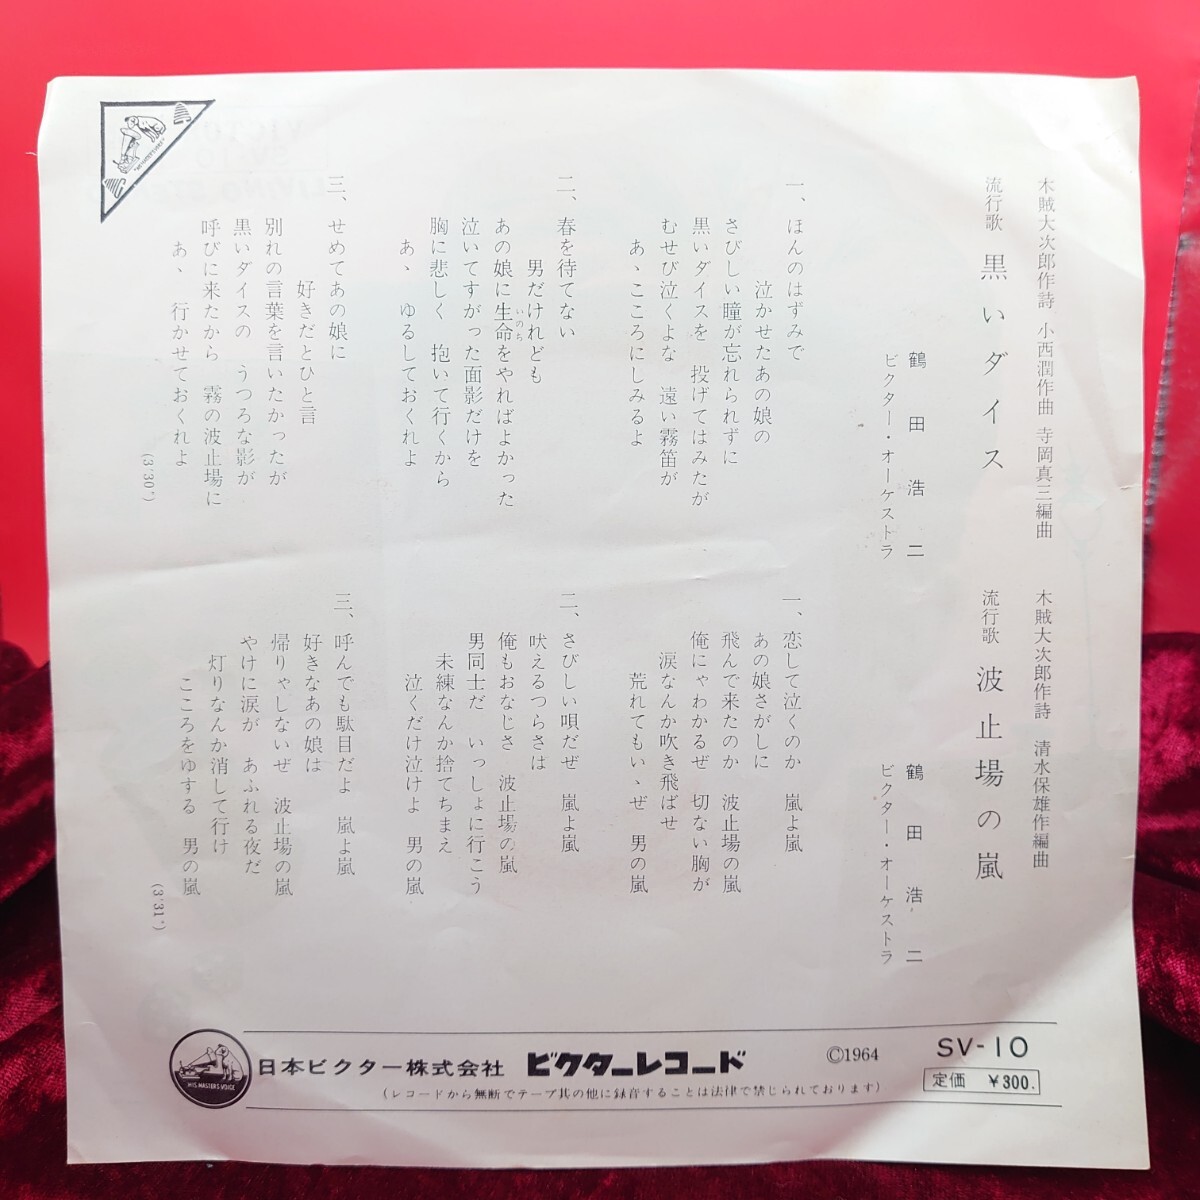 木賊大次郎作詩 小西潤作曲 寺岡真三編曲
流行歌 黒いダイス
鶴田浩二
ビクター・オーケストラ
一、ほんのはずみで
泣かせたあの娘の
さびしい瞳が忘れられずに
黒いダイスを 投げてはみたが
むせび泣くよな 遠い霧笛が
あゝこころにしみるよ
二、春を待てない
男だけれども
あの娘に生命をやればよかった
いのち
泣いてすがった面影だけを
胸に悲しく 抱いて行くから
あゝ ゆるしておくれよ
三、せめてあの娘に
好きだとひと言
別れの言葉を言いたかったが
黒いダイスの うつろな影が
呼びに来たから 霧の波止場に
あゝ 行かせておくれよ
(3'30")
木賊大次郎作詩 清水保雄作編曲
流行歌 波止場の嵐
鶴田浩二
ビクター・オーケストラ
一、恋して泣くのか 嵐よ嵐
あの娘さがしに
飛んで来たのか 波止場の嵐
俺にゃわかるぜ 切ない胸が
涙なんか吹き飛ばせ
荒れてもいゝぜ 男の嵐
二、さびしい唄だぜ 嵐よ嵐
吠えるつらさは
俺もおなじさ 波止場の嵐
男同士だ いっしょに行こう
未練なんか捨てちまえ
泣くだけ泣けよ 男の嵐
三、呼んでも駄目だよ 嵐よ嵐
好きなあの娘は
帰りゃしないぜ 波止場の嵐
やけに涙が あふれる夜だ
灯りなんか消して行け
こころをゆする 男の嵐
(3'31")
"HIS MASTER'S VOICE"
日本ビクター株式会社 ビクターレコード ©1964 SV-10
定価 ¥300.
(レコードから無断でテープ其の他に録音することは法律で禁じられております)